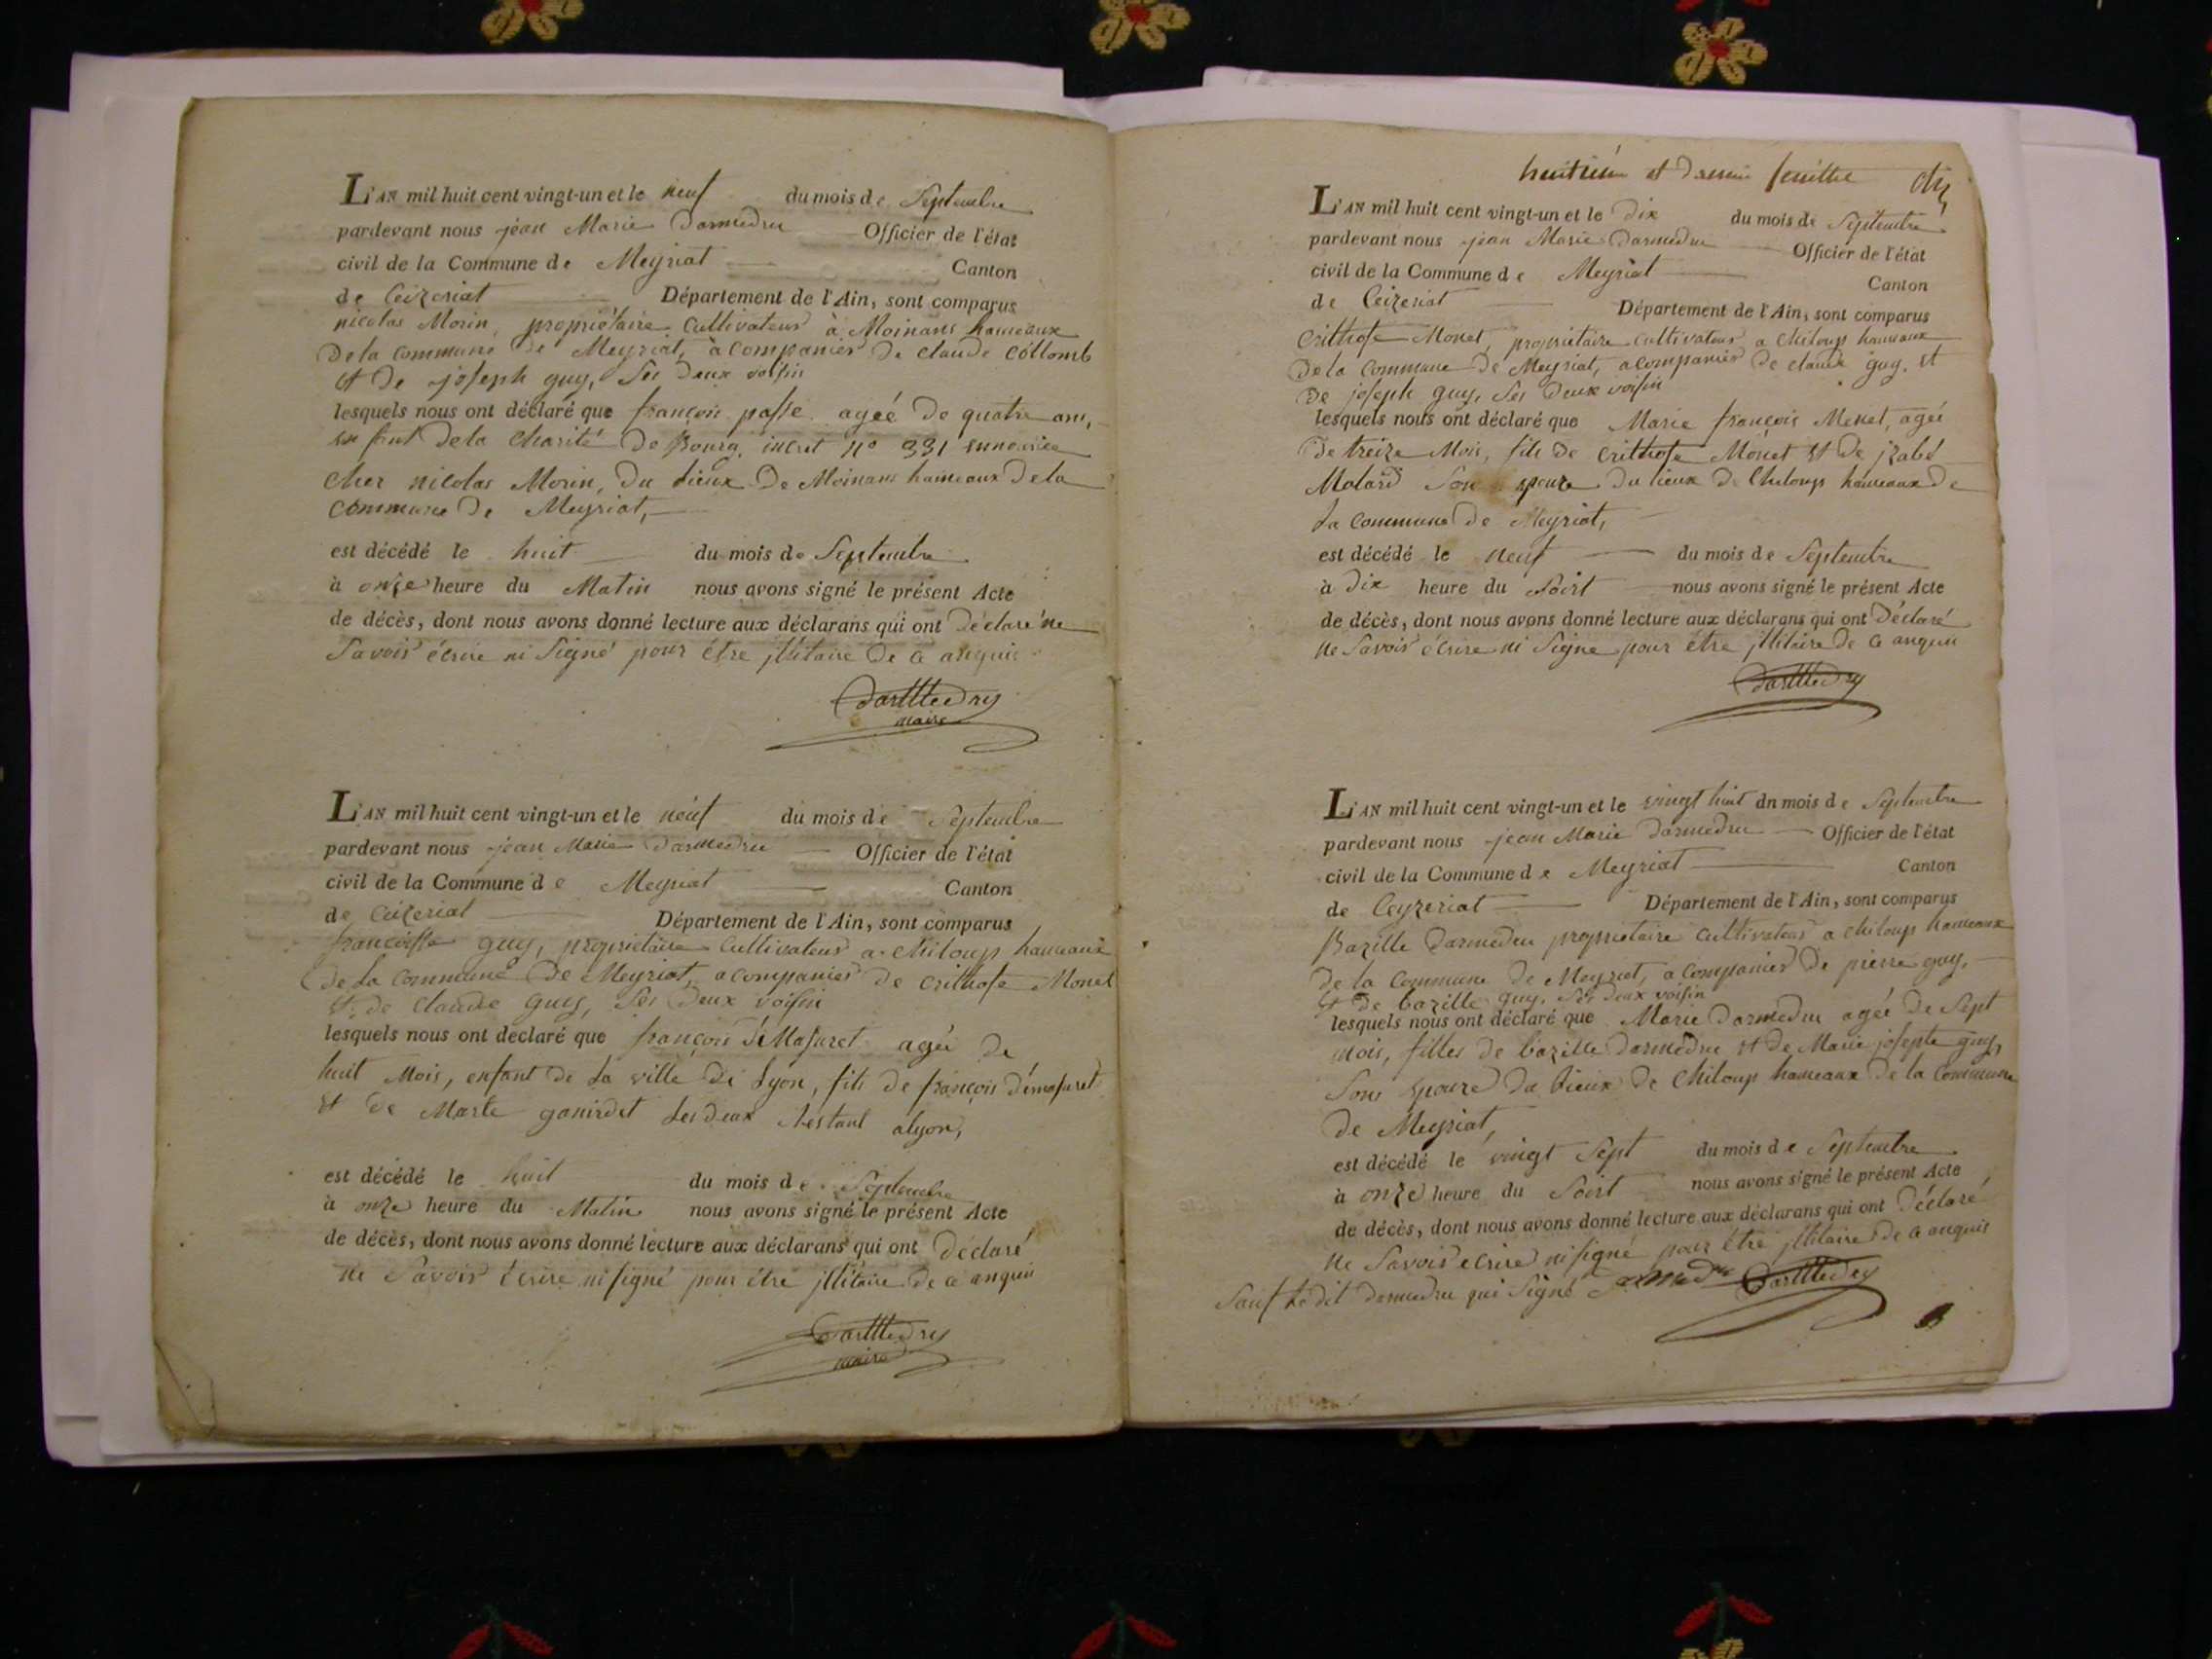 L'AN mil huit cent vingt-un et le neuf du mois de Septembre
pardevant nous jean Marie Darmedru Officier de l'état
civil de la Commune de Meyriat Canton
de Ceizeriat Département de l'Ain, sont comparus
nicolas Morin, propriétaire cultivateur à Moinans hameaux
De la commune de Meyriat, acompanier De claude collomb
et De joseph guy, Ses Deux voisin
lesquels nous ont déclaré que françois passe ageé De quatre ans,
enfent De la charité De Bourg, inscrit n° 331 ennourice
cher nicolas Morin, Du Lieux De Moinans hameaux De la
commune De Meyriat,
est décédé le huit du mois de Septembre
à onze heure du Matin nous avons signé le présent Acte
de décès, dont nous avons donné lecture aux déclarans qui ont Déclaré ne
Savoir écrire ni Signé pour être jllitaire De ce anquis
Darmedru
maire
L'AN mil huit cent vingt-un et le neuf du mois de Septembre
pardevant nous jean Marie Darmedru Officier de l'état
civil de la Commune de Meyriat Canton
de Ceizeriat Département de l'Ain, sont comparus
guy, propriétaire cultivateur a chiloup hameaux
De La commune De Meyriat, acompanier De crithofe Monet
et De claude guy, Ses Deux voisin
lesquels nous ont déclaré que françois agée De
huit Mois, enfant De La ville De Lyon, fils De françois
et De Marie Les Deux Restant alyon,
est décédé le huit du mois de Septembre
à onze heure du Matin nous avons signé le présent Acte
de décès, dont nous avons donné lecture aux déclarans qui ont Déclaré
ne Savoir écrire ni signé pour être jllitaire De ce anquis
Darmedru
maire
huitième et Dernier feuillet
L'AN mil huit cent vingt-un et le Dix du mois de Septembre
pardevant nous jean Marie Darmedru Officier de l'état
civil de la Commune de Meyriat Canton
de Ceizeriat Département de l'Ain, sont comparus
Crithofe Monet, propriétaire cultivateur a chiloup hameaux
De la commune De Meyriat, acompanier De claude guy, et
De joseph guy, Ses Deux voisin
lesquels nous ont déclaré que Marie françois Monet, ageé
De treize Mois, fils De crithofe Monet et De jzabé
Malard Son epouze Du lieux De Chiloup hameaux De
La commune De Meyriat,
est décédé le neuf du mois de Septembre
à Dix heure du Soirt nous avons signé le présent Acte
de décès, dont nous avons donné lecture aux déclarans qui ont Déclaré
ne Savoir écrire ni Signe pour être jllitaire De ce anquis
Darmedru
L'AN mil huit cent vingt-un et le vingt huit dn mois de Septembre
pardevant nous jean Marie Darmedru Officier de l'état
civil de la Commune de Meyriat Canton
de Ceyzeriat Département de l'Ain, sont comparus
Bazille Darmedru propriétaire cultivateur a chiloup hameaux
De la commune De Meyriat, acompanier De pierre guy,
et De bazille guy, Ses Deux voisin
lesquels nous ont déclaré que Marie Darmedru ageé De Sept
mois, filles De bazille Darmedru et De Marie josepte guy,
Son epouze Du Lieux De chiloup hameaux De la commune
De Meyriat,
est décédé le vingt Sept du mois de Septembre
à onze heure du Soirt nous avons signé le présent Acte
de décès, dont nous avons donné lecture aux déclarans qui ont Déclaré
ne Savoir ecrire ni signé pour être jllitaire De ce anquis
Sauf Le dit Darmedru qui Signé Darmedru Darmedru